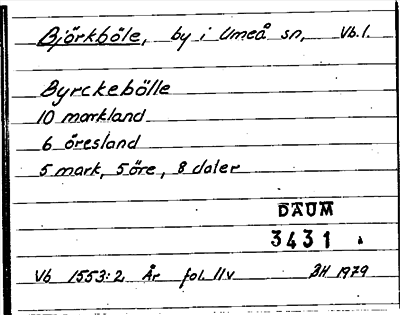 Björkböle, by i Umeå sn, Vb.l.
Byrckebölle
10 markland
6 öresland
5 mark, 5 öre, 8 daler
DAUM
3431
Vb 1553:2 År fol. 11v BH 1979